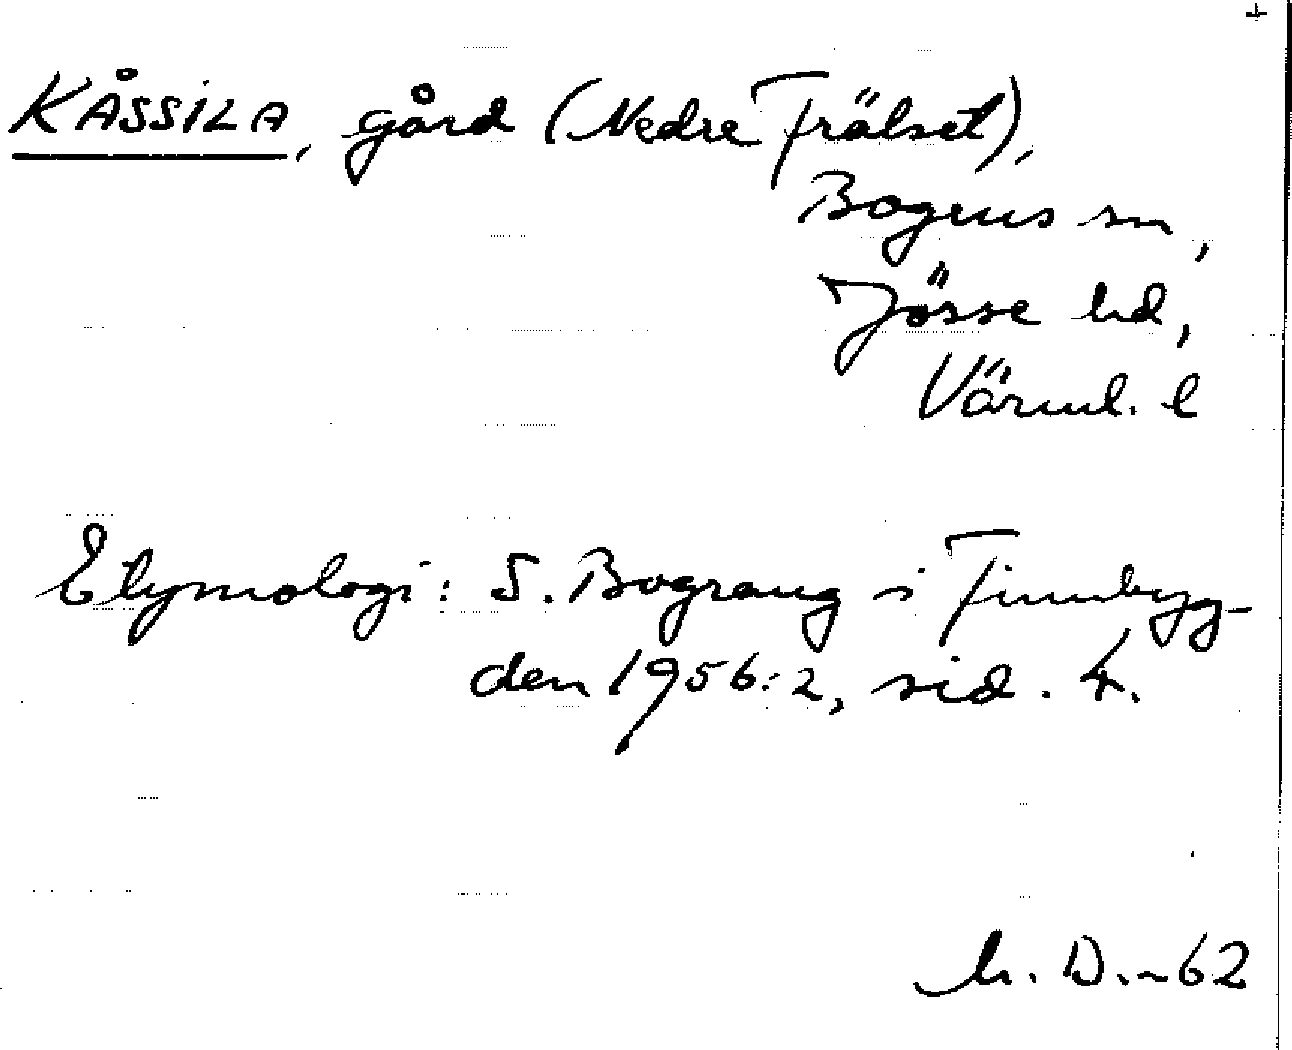 +
KÅSSILA, gård (Nedre Frälset),
Bogens sn,
Jösse hd,
Värml. l
Etymologi: S. Bograng i Finnbyg-
den 1956:2, sid. 4.
h. D. -62